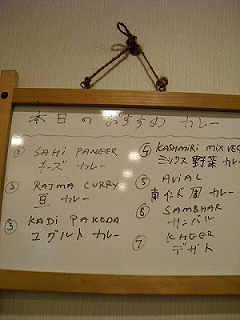 本日のおすすめ カレー
① SAHI PANEER
チーズ カレー
② RAJMA CURRY
豆 カレー
③ KADI PAKODA
ユグルト カレー
④ KASHMIRI MIX VEG
ミックス 野菜 カレー
⑤ AVIAL
南インド風 カレー
⑥ SAMBHAR
サンバル
⑦ KHEER
デザト